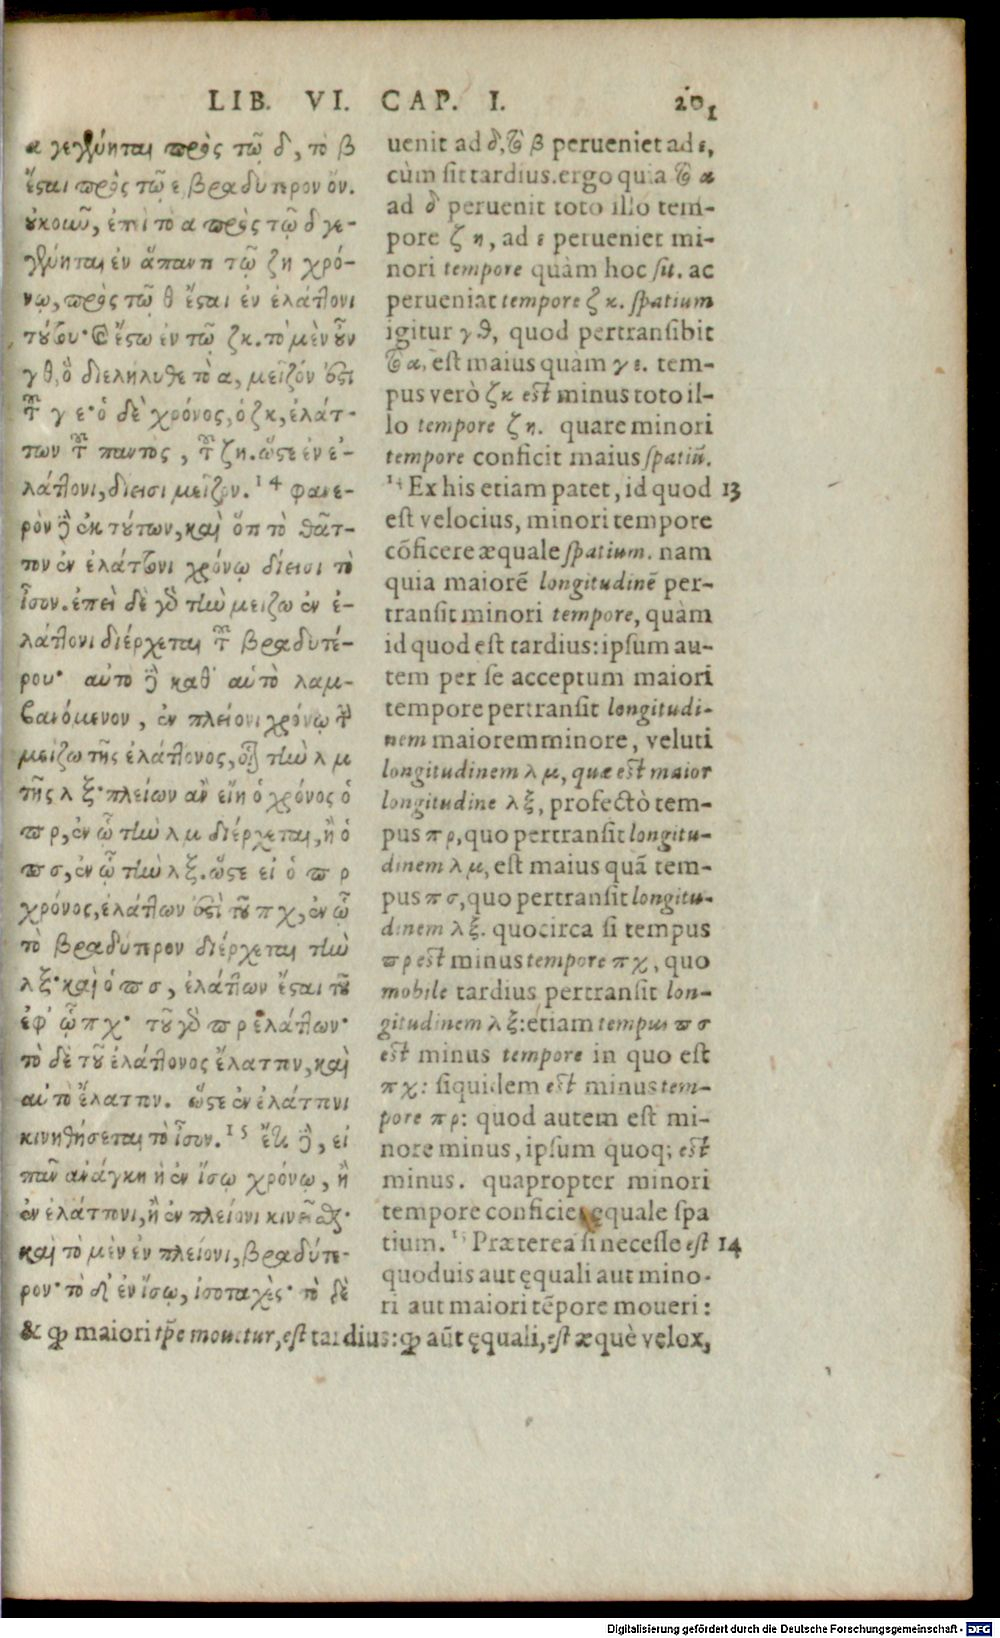 LIB. VI. CAP. I. 201
α γεγένηται πρὸς τῷ δ, τὸ β
ἔσαι πρὸς τῷ ε, βραδύτερον ὄν.
οὐκοῦν, ἐπεὶ τὸ α πρὸς τῷ δ γε-
γένηται ἐν ἅπαντι τῷ ζη χρό-
νῳ, πρὸς τῷ θ ἔσαι ἐν ἐλάττονι
τούτου· καὶ ἔστω ἐν τῷ ζκ. τὸ μὲν οὖν
γθ, ὃ διελήλυθε τὸ α, μεῖζόν ἐστι
τοῦ γε· ὁ δὲ χρόνος, ὁ ζκ, ἐλάτ-
των τοῦ παντὸς, τοῦ ζη. ὥστε ἐν ἐ-
λάττονι, δίεισι μεῖζον. 14 φανε-
ρὸν δὲ ἐκ τούτων, καὶ ὅτι τὸ θᾶτ-
τον ἐν ἐλάττονι χρόνῳ δίεισι τὸ
ἴσον. ἐπεὶ δὲ γὰρ τὴν μείζω ἐν ἐ-
λάττονι διέρχεται τοῦ βραδυτέ-
ρου· αὐτὸ δὲ καθ' αὑτὸ λαμ-
βανόμενον, ἐν πλείονι χρόνῳ τὴν
μείζω τῆς ἐλάττονος, οἷον τὴν λ μ
τῆς λ ξ· πλείων ἂν εἴη ὁ χρόνος ὁ
π ρ, ἐν ᾧ τὴν λ μ διέρχεται, ἢ ὁ
π σ, ἐν ᾧ τὴν λ ξ. ὥστε εἰ ὁ π ρ
χρόνος, ἐλάττων ἐστὶ τοῦ π χ, ἐν ᾧ
τὸ βραδύτερον διέρχεται τὴν
λ ξ· καὶ ὁ π σ, ἐλάττων ἔσαι τοῦ
ἐφ' ᾧ π χ· τοῦ γὰρ π ρ ἐλάττων·
τὸ δὲ τοῦ ἐλάττονος ἔλαττον, καὶ
αὐτὸ ἔλαττον. ὥστε ἐν ἐλάττονι
κινηθήσεται τὸ ἴσον. 15 ἔτι δὲ, εἰ
πᾶν ἀνάγκη ἢ ἐν ἴσῳ χρόνῳ, ἢ
ἐν ἐλάττονι, ἢ ἐν πλείονι κινεῖσθαι·
καὶ τὸ μὲν ἐν πλείονι, βραδύτε-
ρον· τὸ δ' ἐν ἴσῳ, ἰσοταχές· τὸ δὲ
uenit ad δ, & β perueniet ad ε,
cùm sit tardius. ergo quia & α
ad δ peruenit toto illo tem-
pore ζ η, ad ε perueniet mi-
nori tempore quàm hoc sit. ac
perueniat tempore ζ κ. spatium
igitur γ θ, quod pertransibit
& α, est maius quàm γ ε. tem-
pus verò ζ κ est minus toto il-
lo tempore ζ η. quare minori
tempore conficit maius spatiũ.
14 Ex his etiam patet, id quod 13
est velocius, minori tempore
cõficere æquale spatium. nam
quia maiorẽ longitudinẽ per-
transit minori tempore, quàm
id quod est tardius: ipsum au-
tem per se acceptum maiori
tempore pertransit longitudi-
nem maiorem minore, veluti
longitudinem λ μ, quæ est maior
longitudine λ ξ, profectò tem-
pus π ρ, quo pertransit longitu-
dinem λ μ, est maius quã tem-
pus π σ, quo pertransit longitu-
dinem λ ξ. quocirca si tempus
π ρ est minus tempore π χ, quo
mobile tardius pertransit lon-
gitudinem λ ξ: etiam tempus π σ
est minus tempore in quo est
π χ: siquidem est minus tem-
pore π ρ: quod autem est mi-
nore minus, ipsum quoq; est
minus. quapropter minori
tempore conficiet ęquale spa
tium. 15 Præterea si necesse est 14
quoduis aut ęquali aut mino-
ri aut maiori tẽpore moueri:
& qđ maiori tp̃e mouetur, est tardius: qđ aũt ęquali, est æquè velox,
Digitalisierung gefördert durch die Deutsche Forschungsgemeinschaft - DFG